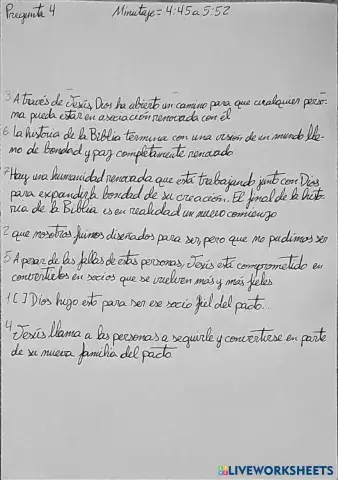 Pregunta 4 Minutaje= 4:45 a 5:52
3 A través de Jesús, Dios ha abierto un camino para que cualquier perso-
na pueda estar en asociación renovada con él
6 La historia de la Biblia termina con una visión de un mundo lle-
no de bondad y paz completamente renovado
7 Hay una humanidad renovada que está trabajando junto con Dios
para expandir la bondad de su creación. El final de la histo-
ria de la Biblia es en realidad un nuevo comienzo
2 que nosotros fuimos diseñados para ser, pero que no pudimos ser
5 A pesar de las fallas de estas personas, Jesús está comprometido en
convertirlos en socios que se vuelven más y más fieles
1 [ ] Dios hizo esto para ser ese socio fiel del pacto...
4 Jesús llama a las personas a seguirle y convertirse en parte
de su nueva familia del pacto
LIVEWORKSHEETS